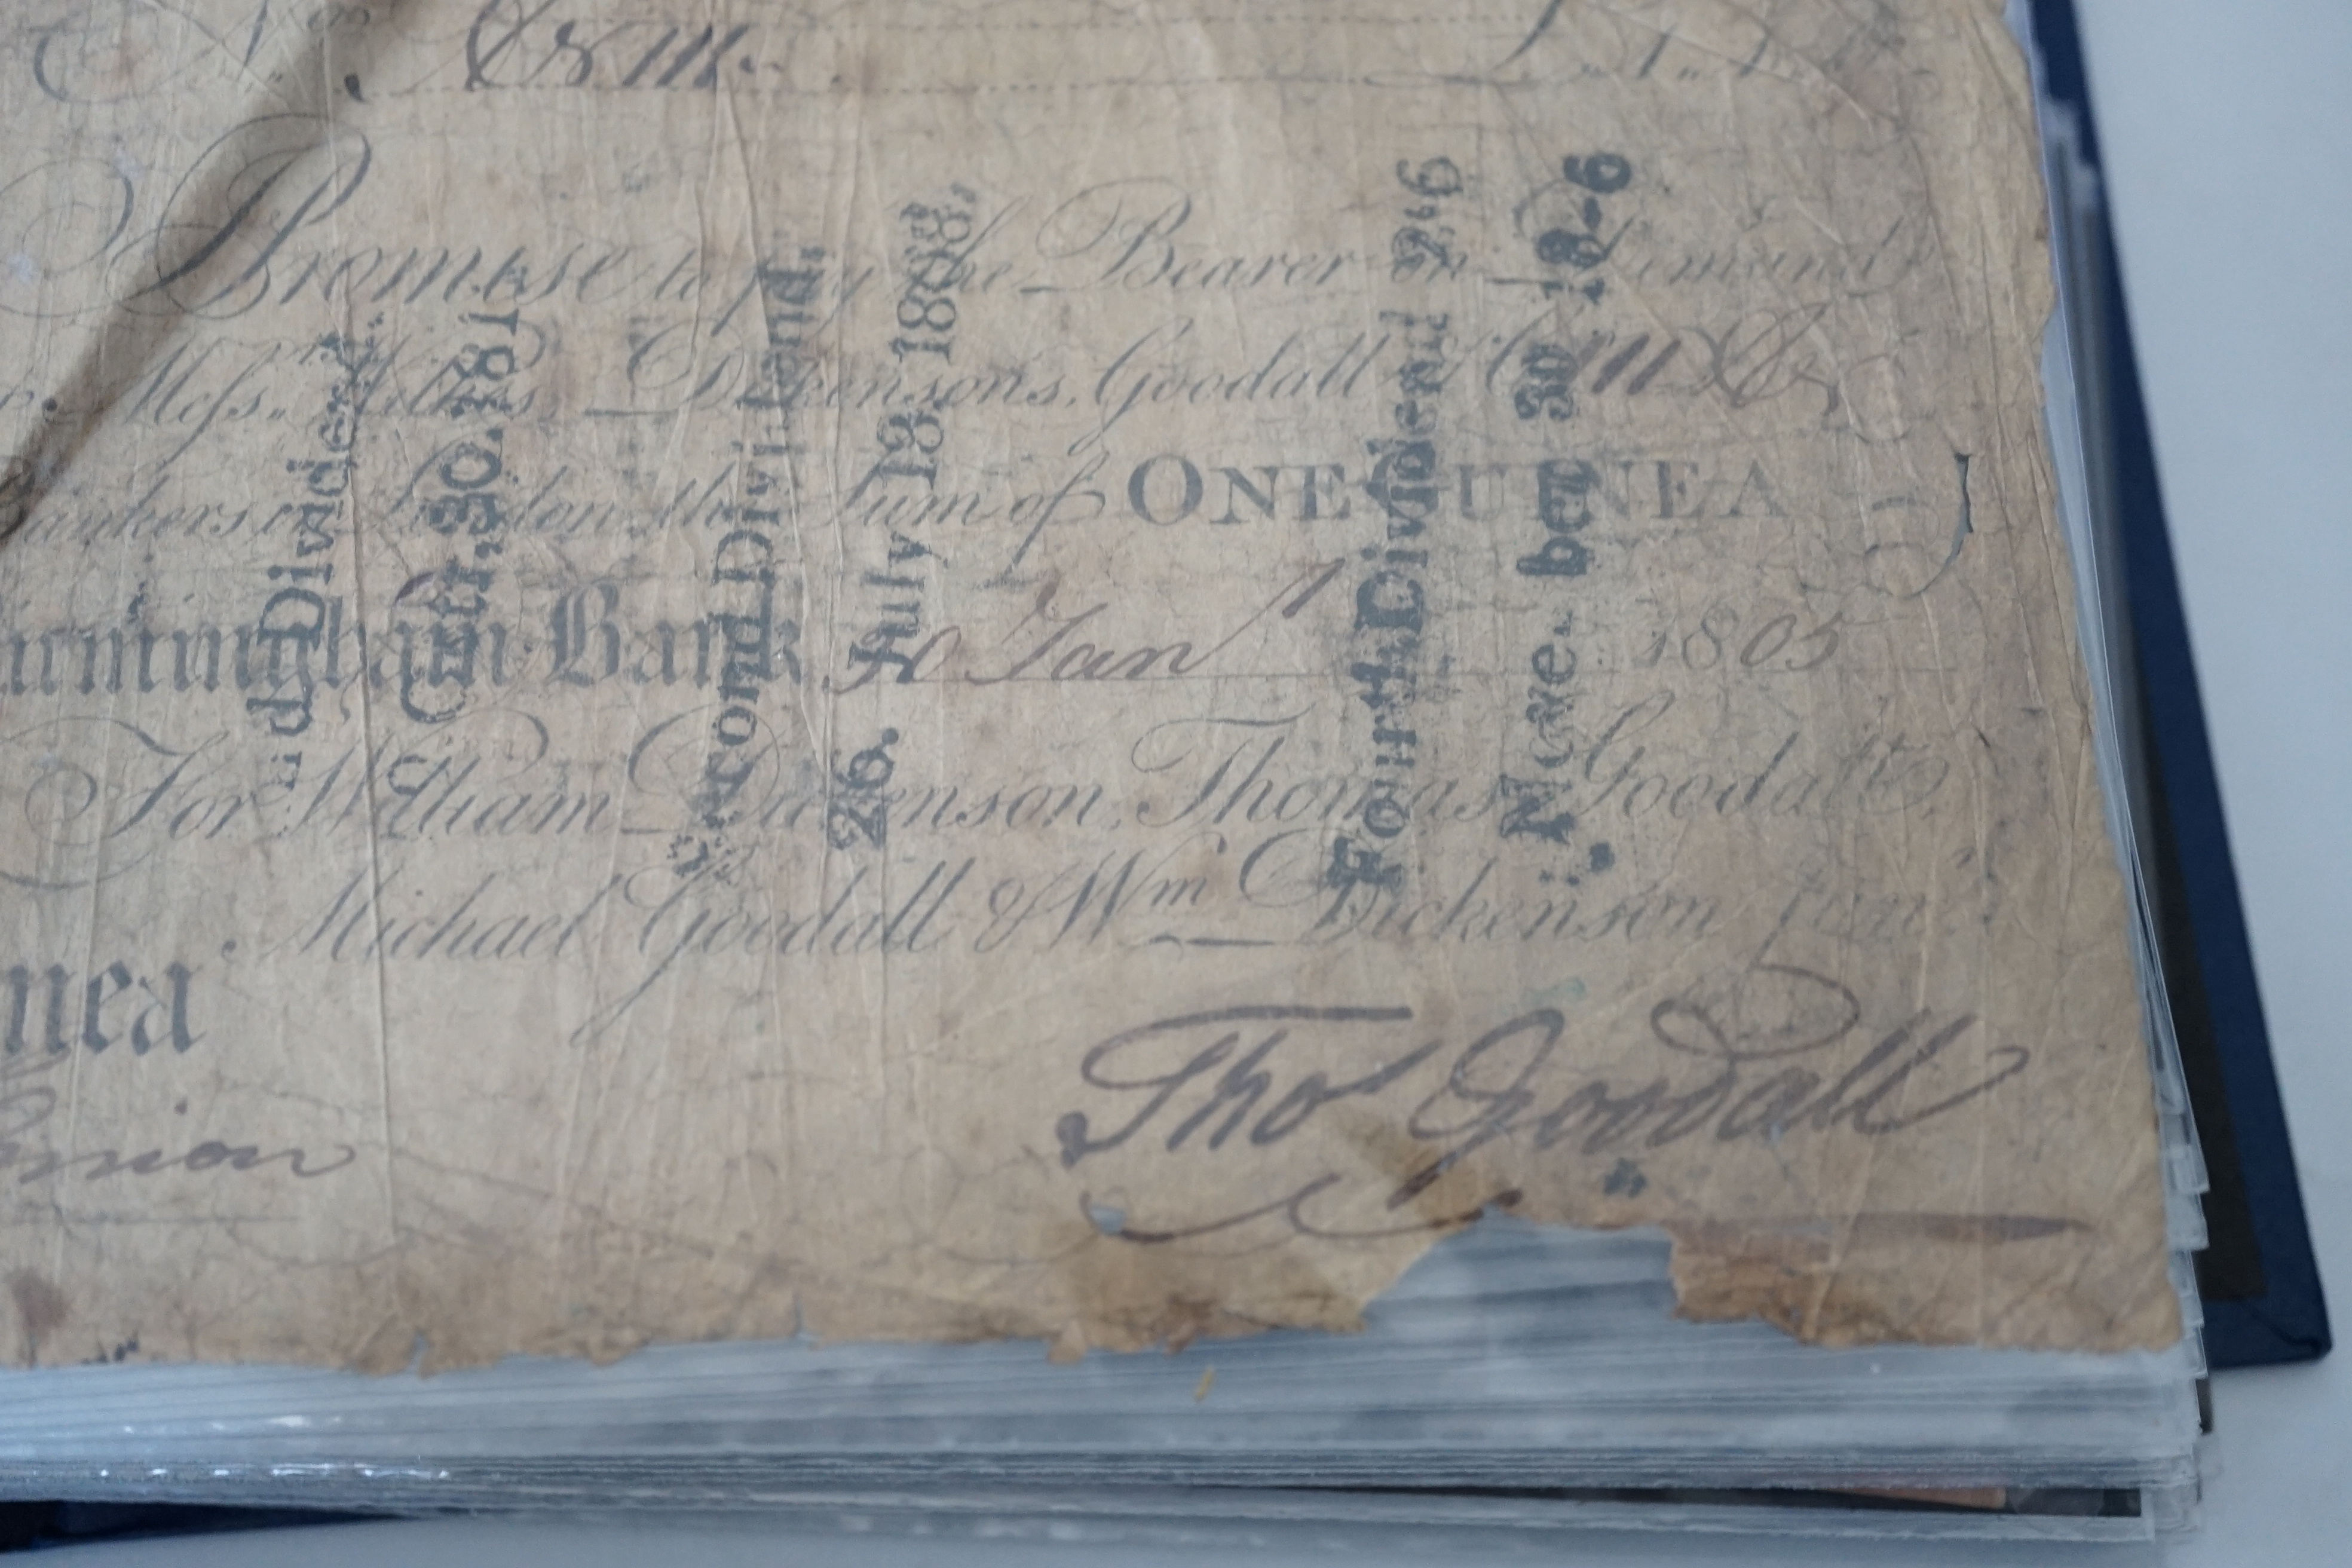 No.
Promise to pay the Bearer on Demand
Mess.rs Wilkes, Dickensons, Goodall &
Bankers in London the Sum of ONE GUINEA
Birmingham Bank 20 Jany 1805
For William Dickenson, Thomas Goodall,
Michael Goodall & Wm Dickenson junr
nea
Thos Goodall
Dividend
Octr, 30, 181
Second Dividend,
26. July 13, 1808,
Fourth Dividend 2,6
Nove. ber 30 18-6